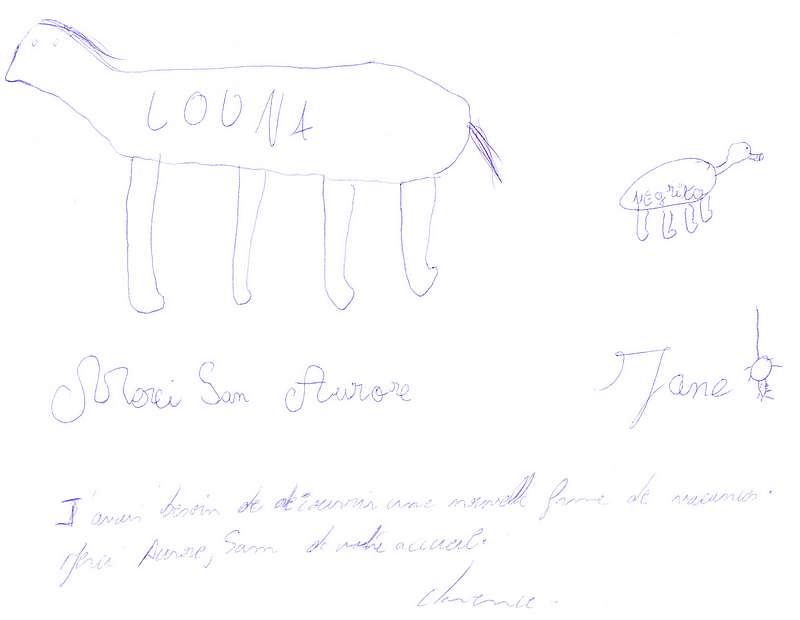 LOUNA
Negrita
Merci Sam Aurore
Jane
J'avais besoin de découvrir une nouvelle forme de vacances.
Merci Aurore, Sam de votre accueil.